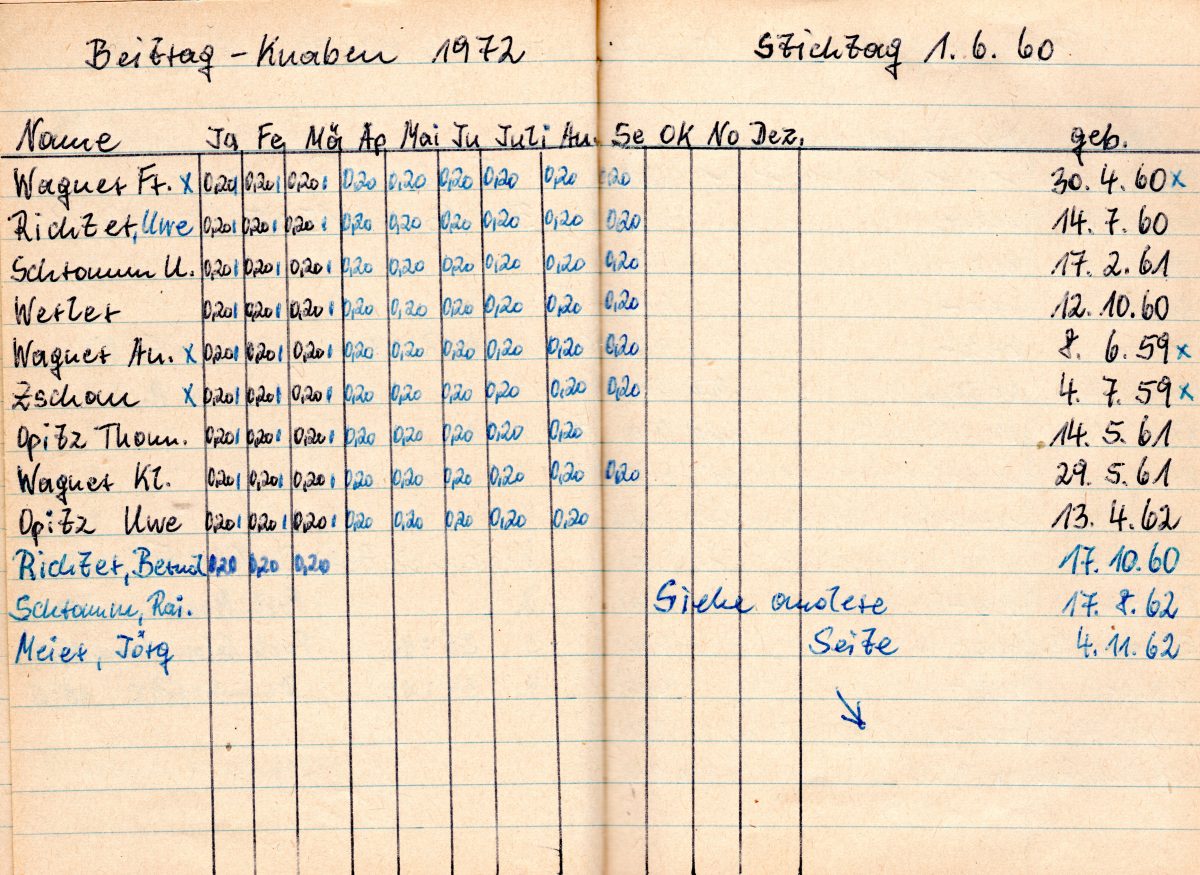 Beitrag - Knaben 1972 Stichtag 1. 6. 60
Name Ja Fe Mä Ap Mai Ju Juli Au. Se OK No Dez. geb.
Wagner Fr. x 0,20 0,20 0,20 0,20 0,20 0,20 0,20 0,20 0,20 30. 4. 60 x
Richter, Uwe 0,20 0,20 0,20 0,20 0,20 0,20 0,20 0,20 0,20 14. 7. 60
Schramm U. 0,20 0,20 0,20 0,20 0,20 0,20 0,20 0,20 0,20 17. 2. 61
Werler 0,20 0,20 0,20 0,20 0,20 0,20 0,20 0,20 0,20 12. 10. 60
Wagner An. x 0,20 0,20 0,20 0,20 0,20 0,20 0,20 0,20 0,20 8. 6. 59 x
Zschau x 0,20 0,20 0,20 0,20 0,20 0,20 0,20 0,20 0,20 4. 7. 59 x
Opitz Thom. 0,20 0,20 0,20 0,20 0,20 0,20 0,20 0,20 14. 5. 61
Wagner Kl. 0,20 0,20 0,20 0,20 0,20 0,20 0,20 0,20 0,20 29. 5. 61
Opitz Uwe 0,20 0,20 0,20 0,20 0,20 0,20 0,20 0,20 13. 4. 62
Richter, Bernd 0,20 0,20 0,20 17. 10. 60
Schramm, Rai. Siehe andere 17. 8. 62
Meier, Jörg Seite 4. 11. 62